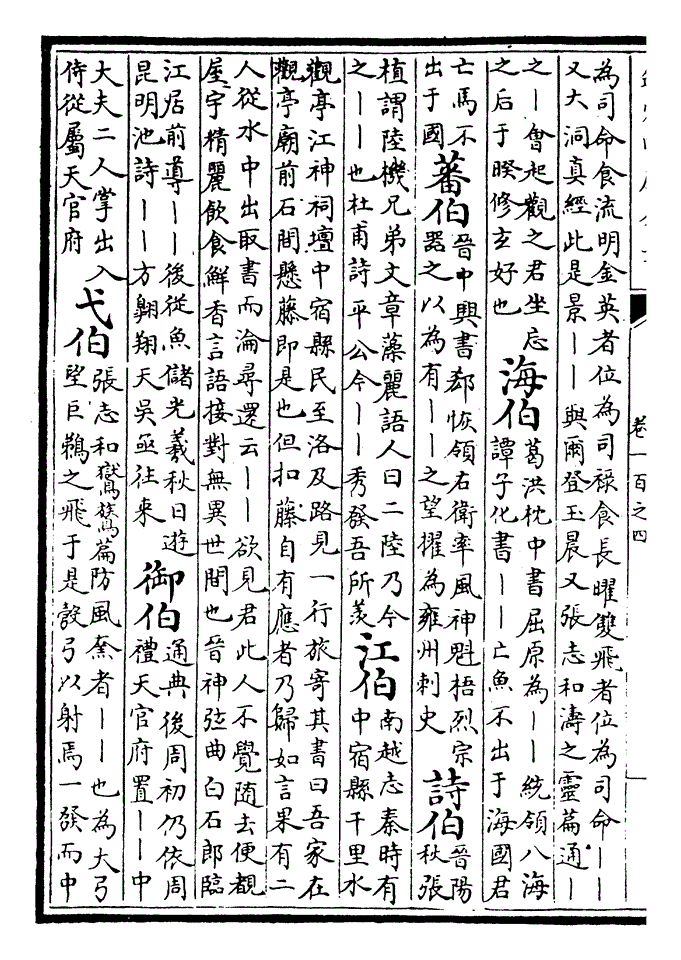 為司命食流明金英者位為司祿食長曜雙飛者位為司命——
又大洞真經此是景——與爾登玉晨又張志和濤之靈篇通—
之—會起觀之君坐忘
之后于睽修玄好也
海伯
葛洪枕中書屈原為——統領八海
譚子化書——亡魚不出于海國君
亡馬不
出于國
蕃伯
晉中興書郄恢領右衛率風神魁梧烈宗
器之以為有——之望擢為雍州刺史
詩伯
晉陽
秋張
植謂陸機兄弟文章藻麗語人曰二陸乃今
之——也杜甫詩平公今——秀發吾所羨
江伯
南越志秦時有
中宿縣千里水
觀亭江神祠壇中宿縣民至洛及路見一行旅寄其書曰吾家在
觀亭廟前石間懸藤即是也但扣藤自有應者乃歸如言果有二
人從水中出取書而淪尋還云——欲見君此人不覺随去便覩
屋宇精麗飲食鮮香言語接對無異世間也晉神弦曲白石郎臨
江居前導——後從魚儲光羲秋日遊
昆明池詩——方翺翔天吳亟往來
御伯
通典後周初仍依周
禮天官府置——中
大夫二人掌出入
侍從屬天官府
弋伯
張志和鸑鷟篇防風窯者——也為大弓
望巨鵜之飛于是彀弓以射焉一發而中
卷一百之四